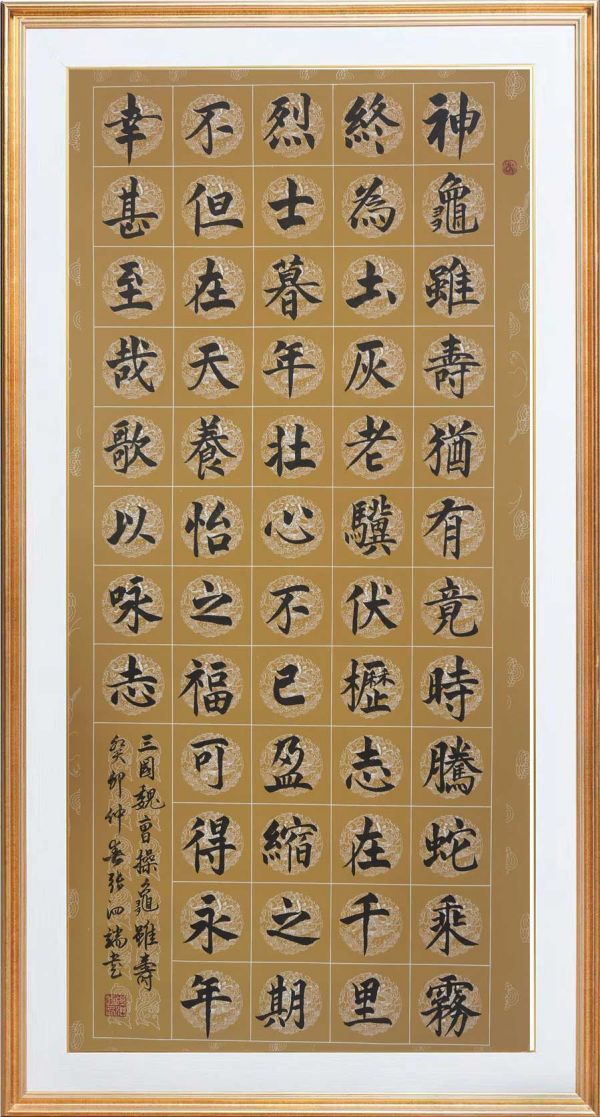 神龜雖壽猶有竟時騰蛇乘霧
終為土灰老驥伏櫪志在千里
烈士暮年壯心不已盈縮之期
不但在天養怡之福可得永年
幸甚至哉歌以咏志
三國魏曹操龜雖壽
癸卯仲春張泗端書